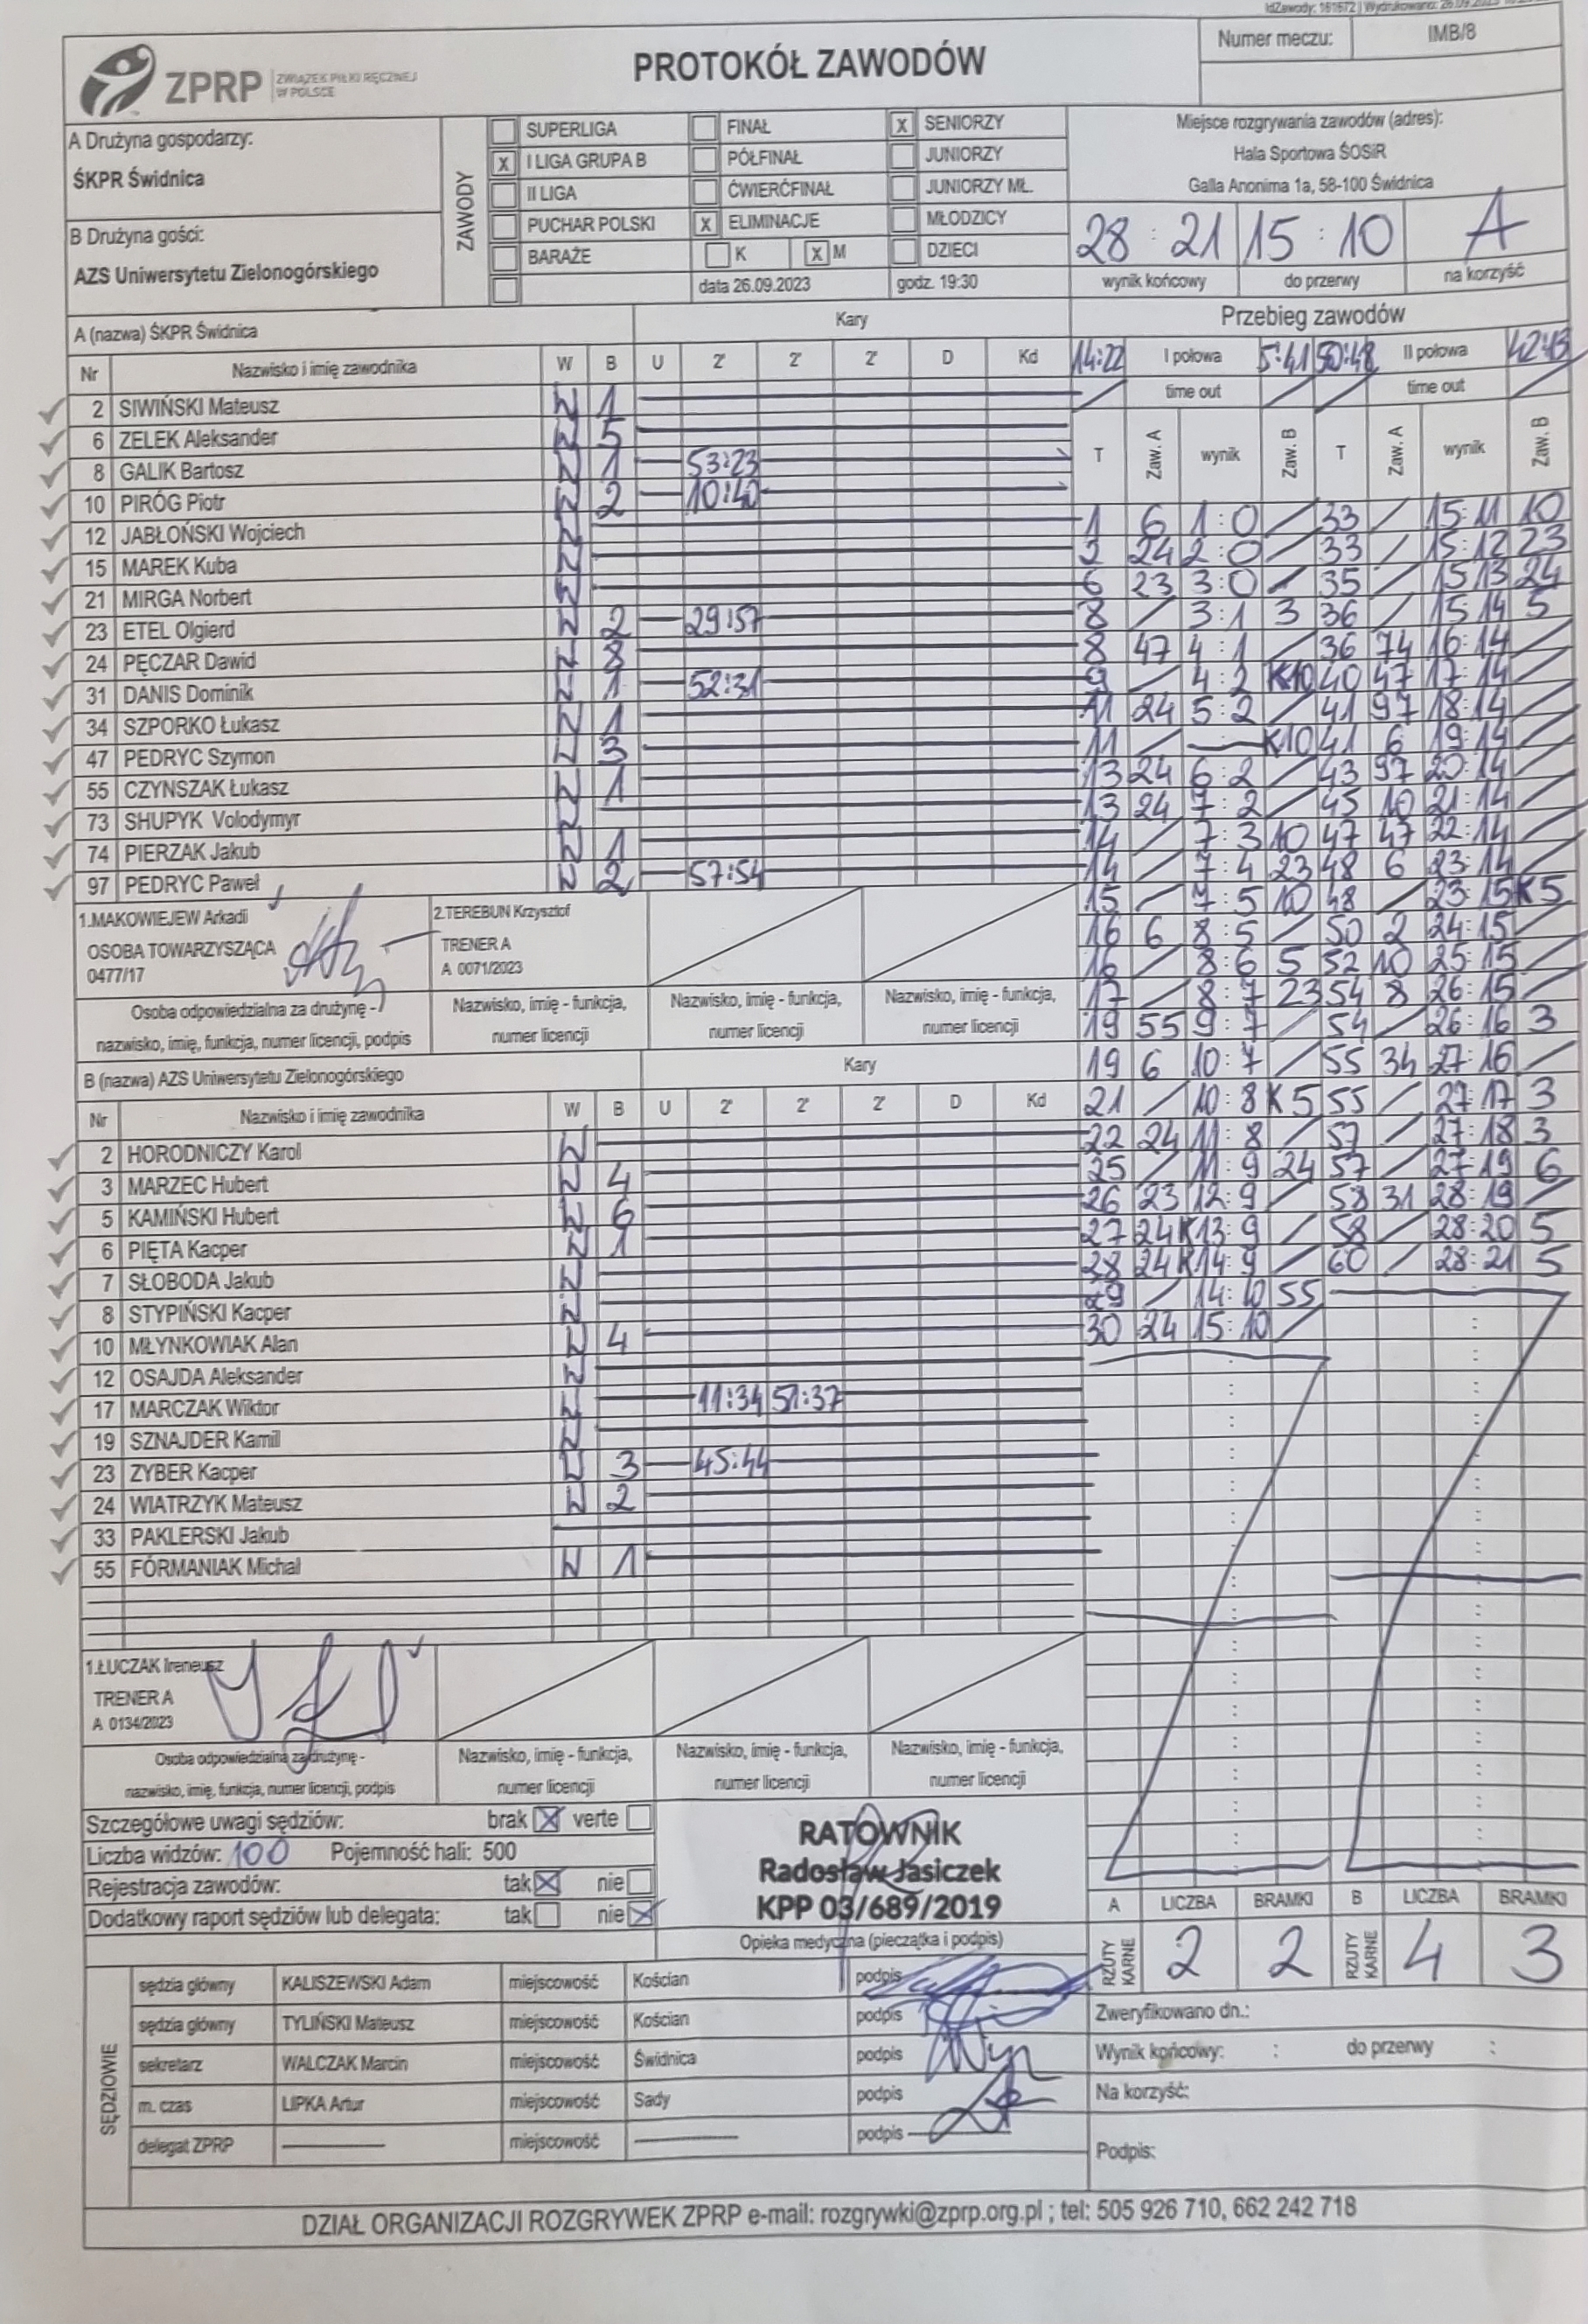 IdZawody: 161672 | Wydrukowano: 26.09.2023
ZPRP ZWIĄZEK PIŁKI RĘCZNEJ W POLSCE
PROTOKÓŁ ZAWODÓW
Numer meczu: IMB/8
A Drużyna gospodarzy:
ŚKPR Świdnica
B Drużyna gości:
AZS Uniwersytetu Zielonogórskiego
ZAWODY
SUPERLIGA FINAŁ X SENIORZY
X I LIGA GRUPA B PÓŁFINAŁ JUNIORZY
II LIGA ĆWIERĆFINAŁ JUNIORZY MŁ.
PUCHAR POLSKI X ELIMINACJE MŁODZICY
BARAŻE K X M DZIECI
data 26.09.2023 godz. 19:30
Miejsce rozgrywania zawodów (adres):
Hala Sportowa ŚOSiR
Galla Anonima 1a, 58-100 Świdnica
28 : 21 15 : 10 A
wynik końcowy do przerwy na korzyść
A (nazwa) ŚKPR Świdnica Kary
Nr Nazwisko i imię zawodnika W B U 2' 2' 2' D Kd
2 SIWIŃSKI Mateusz W 1
6 ZELEK Aleksander W 5
8 GALIK Bartosz W 1 53:23
10 PIRÓG Piotr W 2 10:40
12 JABŁOŃSKI Wojciech W
15 MAREK Kuba W
21 MIRGA Norbert W
23 ETEL Olgierd W 2 29:57
24 PĘCZAR Dawid W 8
31 DANIS Dominik W 1 52:31
34 SZPORKO Łukasz W 1
47 PEDRYC Szymon W 3
55 CZYNSZAK Łukasz W 1
73 SHUPYK Volodymyr W
74 PIERZAK Jakub W 1
97 PEDRYC Paweł W 2 57:54
1.MAKOWIEJEW Arkadi
OSOBA TOWARZYSZĄCA
0477/17
2.TEREBUN Krzysztof
TRENER A
A 0071/2023
Osoba odpowiedzialna za drużynę -
nazwisko, imię, funkcja, numer licencji, podpis
Nazwisko, imię - funkcja,
numer licencji
Nazwisko, imię - funkcja,
numer licencji
Nazwisko, imię - funkcja,
numer licencji
B (nazwa) AZS Uniwersytetu Zielonogórskiego Kary
Nr Nazwisko i imię zawodnika W B U 2' 2' 2' D Kd
2 HORODNICZY Karol W
3 MARZEC Hubert W 4
5 KAMIŃSKI Hubert W 6
6 PIĘTA Kacper W 1
7 SŁOBODA Jakub W
8 STYPIŃSKI Kacper W
10 MŁYNKOWIAK Alan W 4
12 OSAJDA Aleksander W
17 MARCZAK Wiktor W 11:34 51:37
19 SZNAJDER Kamil W
23 ZYBER Kacper W 3 45:44
24 WIATRZYK Mateusz W 2
33 PAKLERSKI Jakub
55 FORMANIAK Michał W 1
1.ŁUCZAK Ireneusz
TRENER A
A 0134/2023
Osoba odpowiedzialna za drużynę -
nazwisko, imię, funkcja, numer licencji, podpis
Nazwisko, imię - funkcja,
numer licencji
Nazwisko, imię - funkcja,
numer licencji
Nazwisko, imię - funkcja,
numer licencji
Przebieg zawodów
14:22 I połowa 5:41 50:48 II połowa 42:13
time out time out
T Zaw. A wynik Zaw. B T Zaw. A wynik Zaw. B
1 6 1:0 / 33 / 15:11 10
2 24 2:0 / 33 / 15:12 23
6 23 3:0 / 35 / 15:13 24
8 / 3:1 3 36 / 15:14 5
8 47 4:1 / 36 74 16:14 /
9 / 4:2 K10 40 47 17:14 /
11 24 5:2 / 41 97 18:14 /
11 / K10 41 6 19:14 /
13 24 6:2 / 43 97 20:14 /
13 24 7:2 / 45 10 21:14 /
14 / 7:3 10 47 47 22:14 /
14 / 7:4 23 48 6 23:14 /
15 / 7:5 10 48 / 23:15 K5
16 6 8:5 / 50 2 24:15 /
16 / 8:6 5 52 10 25:15 /
17 / 8:7 23 54 8 26:15 /
19 55 9:7 / 54 / 26:16 3
19 6 10:7 / 55 34 27:16 /
21 / 10:8 K5 55 / 27:17 3
22 24 11:8 / 57 / 27:18 3
25 / 11:9 24 57 / 27:19 6
26 23 12:9 / 58 31 28:19 /
27 24K 13:9 / 58 / 28:20 5
28 24K 14:9 / 60 / 28:21 5
29 / 14:10 55
30 24 15:10 /
Szczegółowe uwagi sędziów: brak X verte
Liczba widzów: 100 Pojemność hali: 500
Rejestracja zawodów: tak X nie
Dodatkowy raport sędziów lub delegata: tak nie X
RATOWNIK
Radosław Jasiczek
KPP 03/689/2019
Opieka medyczna (pieczątka i podpis)
A LICZBA BRAMKI B LICZBA BRAMKI
RZUTY KARNE 2 2 RZUTY KARNE 4 3
SĘDZIOWIE
sędzia główny KALISZEWSKI Adam miejscowość Kościan podpis
sędzia główny TYLIŃSKI Mateusz miejscowość Kościan podpis
sekretarz WALCZAK Marcin miejscowość Świdnica podpis
m. czas LIPKA Artur miejscowość Sady podpis
delegat ZPRP miejscowość podpis
Zweryfikowano dn.:
Wynik końcowy: : do przerwy :
Na korzyść:
Podpis:
DZIAŁ ORGANIZACJI ROZGRYWEK ZPRP e-mail: rozgrywki@zprp.org.pl ; tel: 505 926 710, 662 242 718